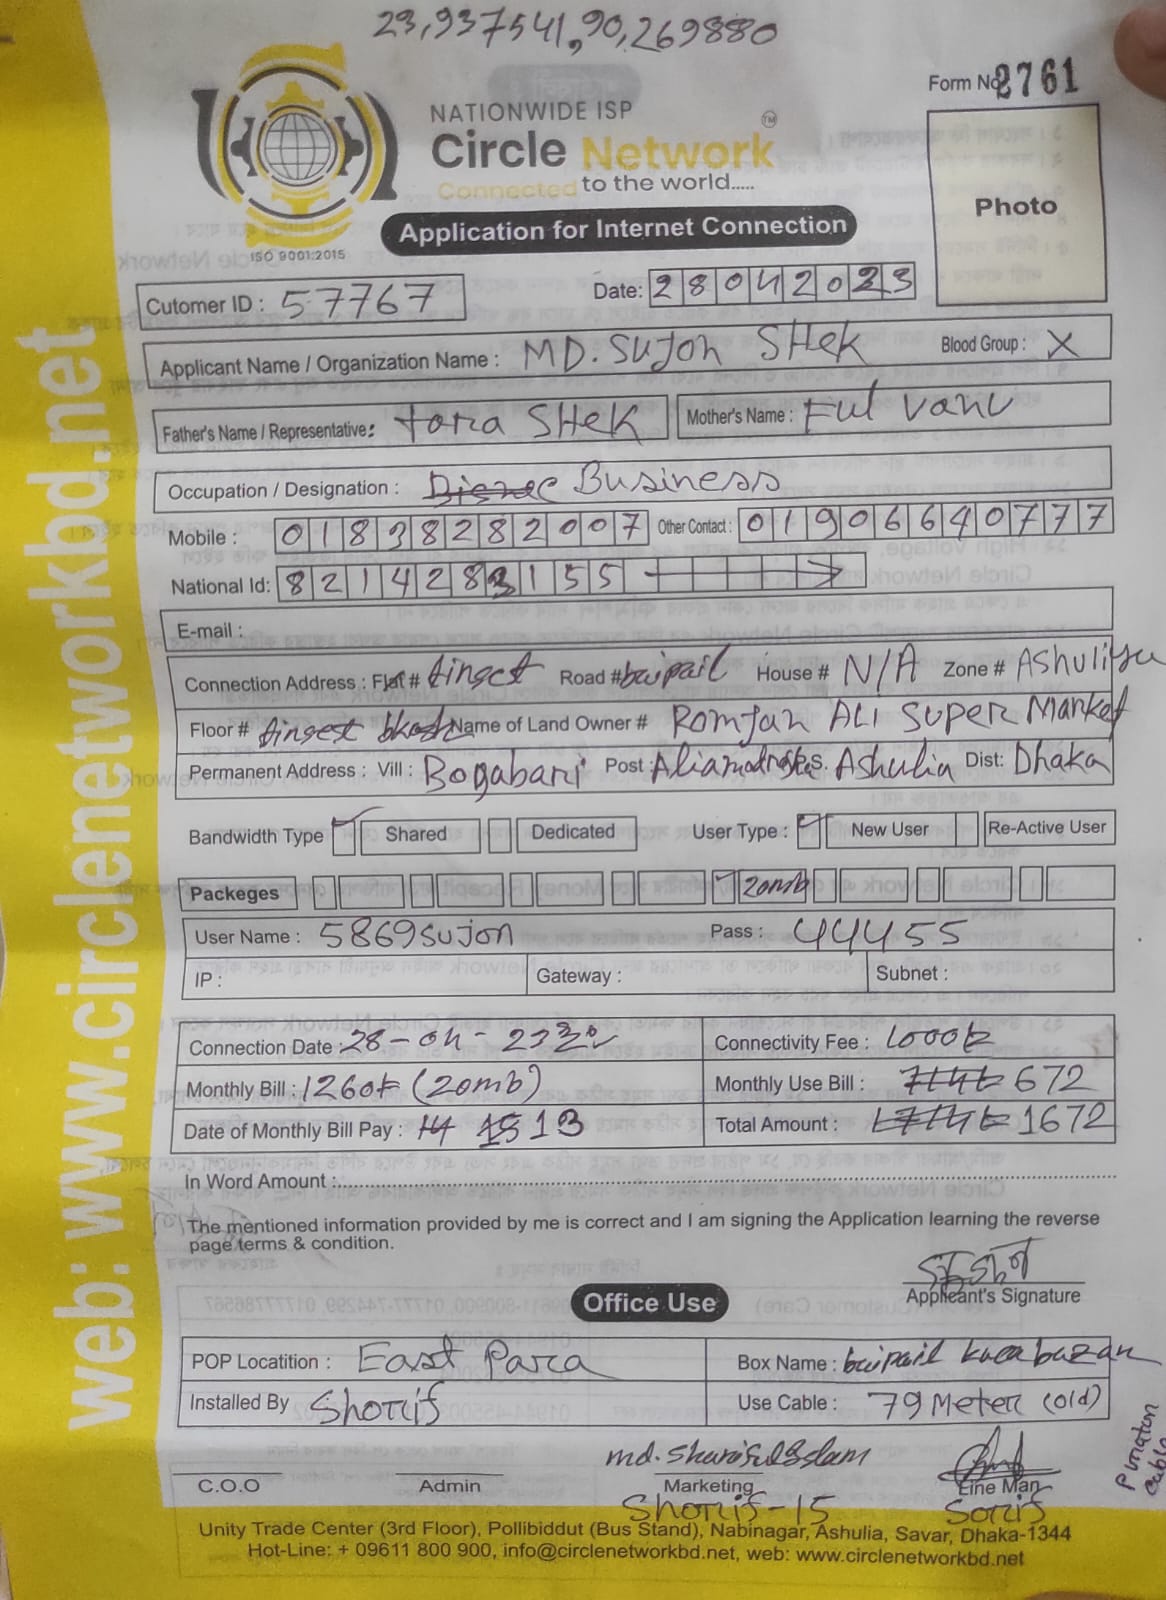 23,937541,90,269880
Form No 2761
NATIONWIDE ISP
Circle Network TM
Connected to the world.....
ISO 9001:2015
Application for Internet Connection
Photo
Cutomer ID : 57767
Date: 28042023
Applicant Name / Organization Name : MD. Sujon SHek Blood Group : X
Father's Name / Representative: tara SHek Mother's Name : Ful vanu
Occupation / Designation : Business
Mobile : 01838282007 Other Contact : 01906640777
National Id: 8214283155
E-mail :
Connection Address : Flat # tinset Road # baipail House # N/A Zone # Ashuliya
Floor # tinset Name of Land Owner # Romjan ALI Super Market
Permanent Address : Vill : Bogabari Post : P.S. Ashulia Dist: Dhaka
Bandwidth Type Shared Dedicated User Type : New User Re-Active User
Packeges 20mb
User Name : 5869sujon Pass : 44455
IP : Gateway : Subnet :
Connection Date : 28-04-23 Connectivity Fee : 1000tk
Monthly Bill : 1260tk (20mb) Monthly Use Bill : 672
Date of Monthly Bill Pay : 13 Total Amount : 1672
In Word Amount :
The mentioned information provided by me is correct and I am signing the Application learning the reverse
page terms & condition.
Applicant's Signature
Office Use
POP Locatition : East Para Box Name : baipail kacabazar
Installed By Shorif Use Cable : 79 Meter (old)
Puraton cable
md. Shariful Islam
C.O.O Admin Marketing Line Man
Shorif-15 Sorif
Unity Trade Center (3rd Floor), Pollibiddut (Bus Stand), Nabinagar, Ashulia, Savar, Dhaka-1344
Hot-Line: + 09611 800 900, info@circlenetworkbd.net, web: www.circlenetworkbd.net
web: www.circlenetworkbd.net